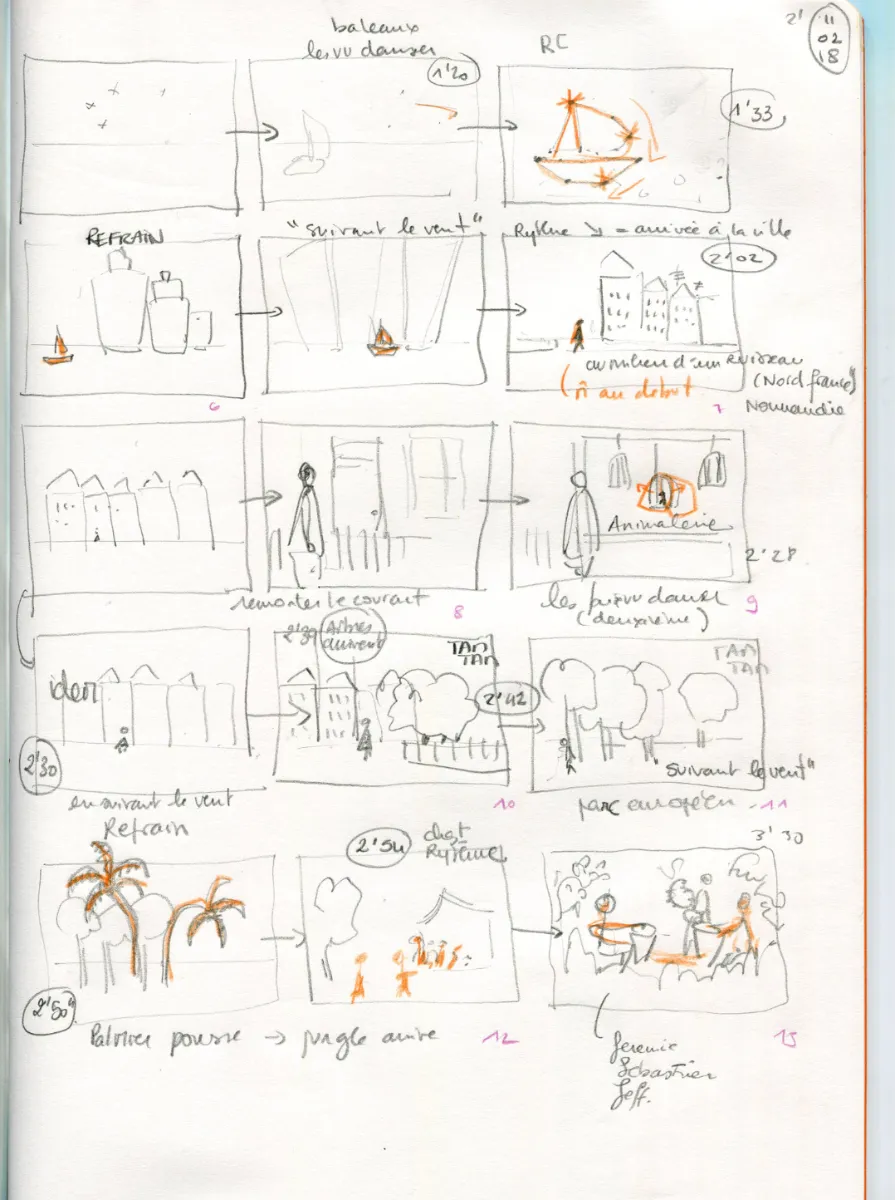 bateaux
les vu danser
RC
2'
11
02
18
1'20
1'33
REFRAIN
"suivant le vent"
Rythme ↘ = arrivée à la ville
2'02
au milieu d'un ruisseau
(Nord france)
Normandie
au début
6
7
Animalerie
2'28
remonter le courant
8
les
danser
(deuxième)
9
2'39
Arbres
arrivent
TAM
TAM
TAM
TAM
idem
2'42
2'30
"suivant le vent"
en suivant le vent
10
parc européen
11
Refrain
2'54
chgt
Rythme
3'30
2'50"
Palmier pousse → jungle arrive
12
13
Jeremie
Sebastien
Jeff.